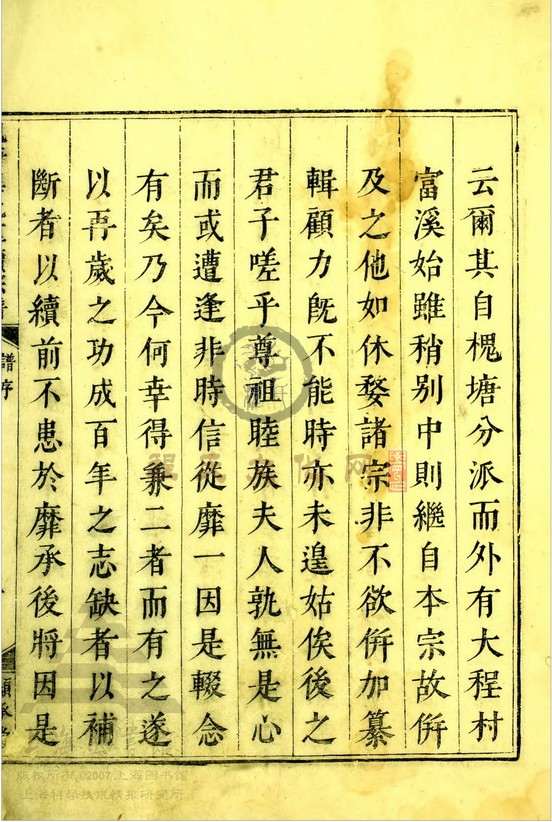 云爾其自槐塘分派而外有大程村
富溪始雖稍別中則繼自本宗故倂
及之他如休婺諸宗非不欲倂加纂
輯顧力旣不能時亦未遑姑俟後之
君子嗟乎尊祖睦族夫人孰無是心
而或遭逢非時信從靡一因是輟念
有矣乃今何幸得兼二者而有之遂
以再歲之功成百年之志缺者以補
斷者以續前不患於靡承後將因是
譜序
版权所有©2007上海图书馆
上海科学技术情报研究所